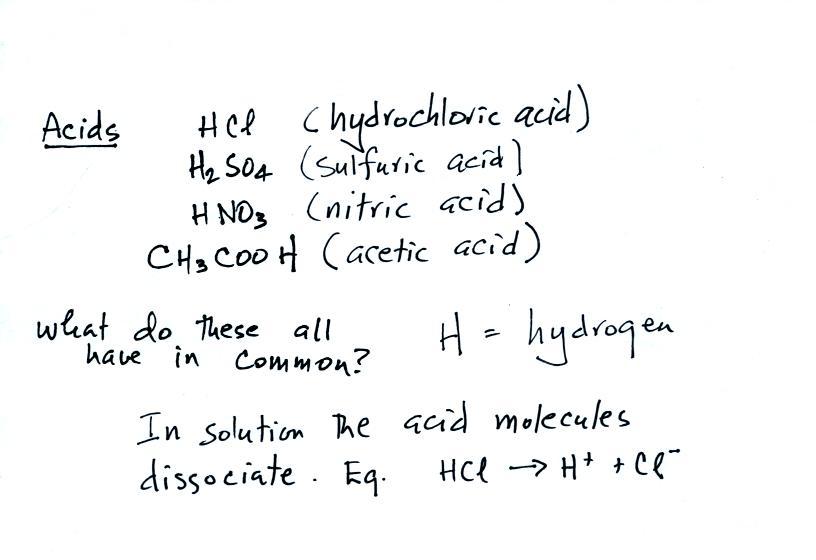 Acids HCl (hydrochloric acid)
H₂SO₄ (sulfuric acid)
HNO₃ (nitric acid)
CH₃COOH (acetic acid)
What do these all
have in common?
H = hydrogen
In solution the acid molecules
dissociate. Eg. HCl → H⁺ + Cl⁻